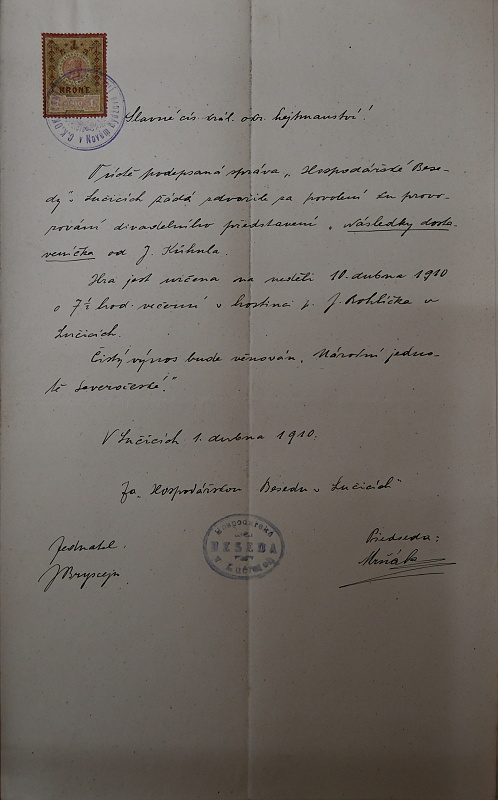 1
KRONE
Slavné cís. král. okr. hejtmanství!
podepsaná správa „Hospodářské Bese-
dy" v Lučicích žádá zdvořile za povolení ku provo-
zování divadelního představení „Následky dosta-
veníčka od J. Kühnla.
Hra jest určena na neděli 10. dubna 1910
o 7½ hod. večerní v hostinci p. J. Rohlíčka v
Lučicích.
Čistý výnos bude věnován „Národní jedno-
tě Severočeské."
V Lučicích 1. dubna 1910.
Za „Hospodářskou Besedu v Lučicích"
Hospodářská
BESEDA
v Lučicích
Jednatel.
Předseda: